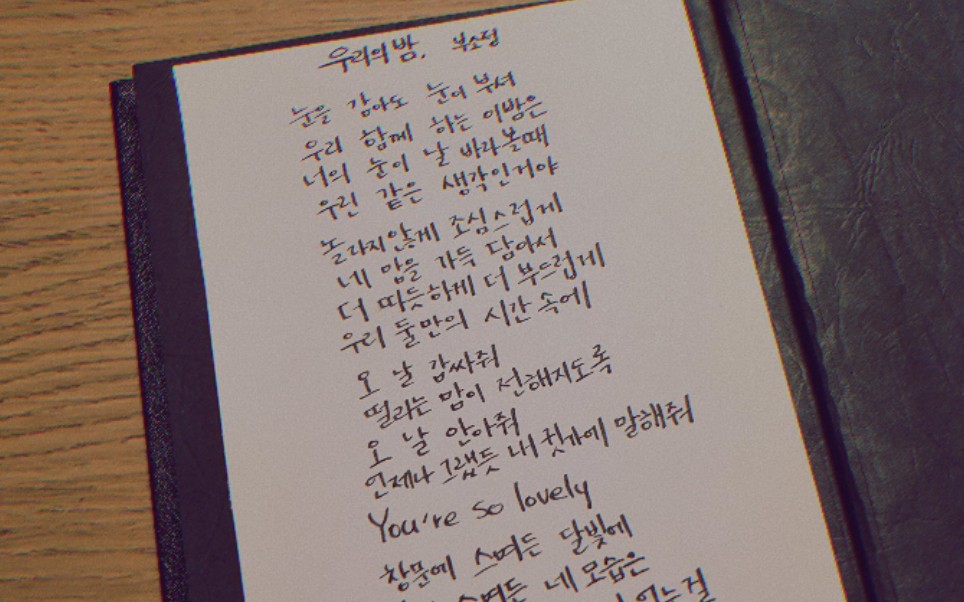 우리의 밤. 부소정
눈을 감아도 눈이 부셔
우리 함께 하는 이밤은
너의 눈이 날 바라볼때
우린 같은 생각인거야
놀라지않게 조심스럽게
네 맘을 가득 담아서
더 따듯하게 더 부드럽게
우리 둘만의 시간 속에
오 날 감싸줘
떨리는 맘이 전해지도록
오 날 안아줘
언제나 그랬듯 내 귓가에 말해줘
You're so lovely
창문에 스며든 달빛에
스며든 네 모습은
없는걸